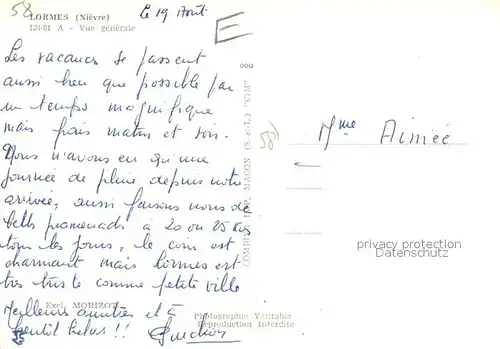 58
LORMES (Nièvre)
124-81 A - Vue générale
le 19 Août
E
Les vacances se passent
aussi bien que possible par
un temps magnifique
mais frais matin et soir.
Nous n'avons eu qu'une
journée de pluie depuis notre
arrivée, aussi faisons nous de
belles promenades à 20 ou 25 Kms
tous les jours, le coin est
charmant mais Lormes est
très triste comme petite ville
Meilleures amitiés et à
bientôt hélas !!
Excl. MORIZOT
Photographie Véritable
Reproduction Interdite
COMBIER IMP. MACON (S.-et-L.) "CIM"
58
Mme Aimée
privacy protection
Datenschutz